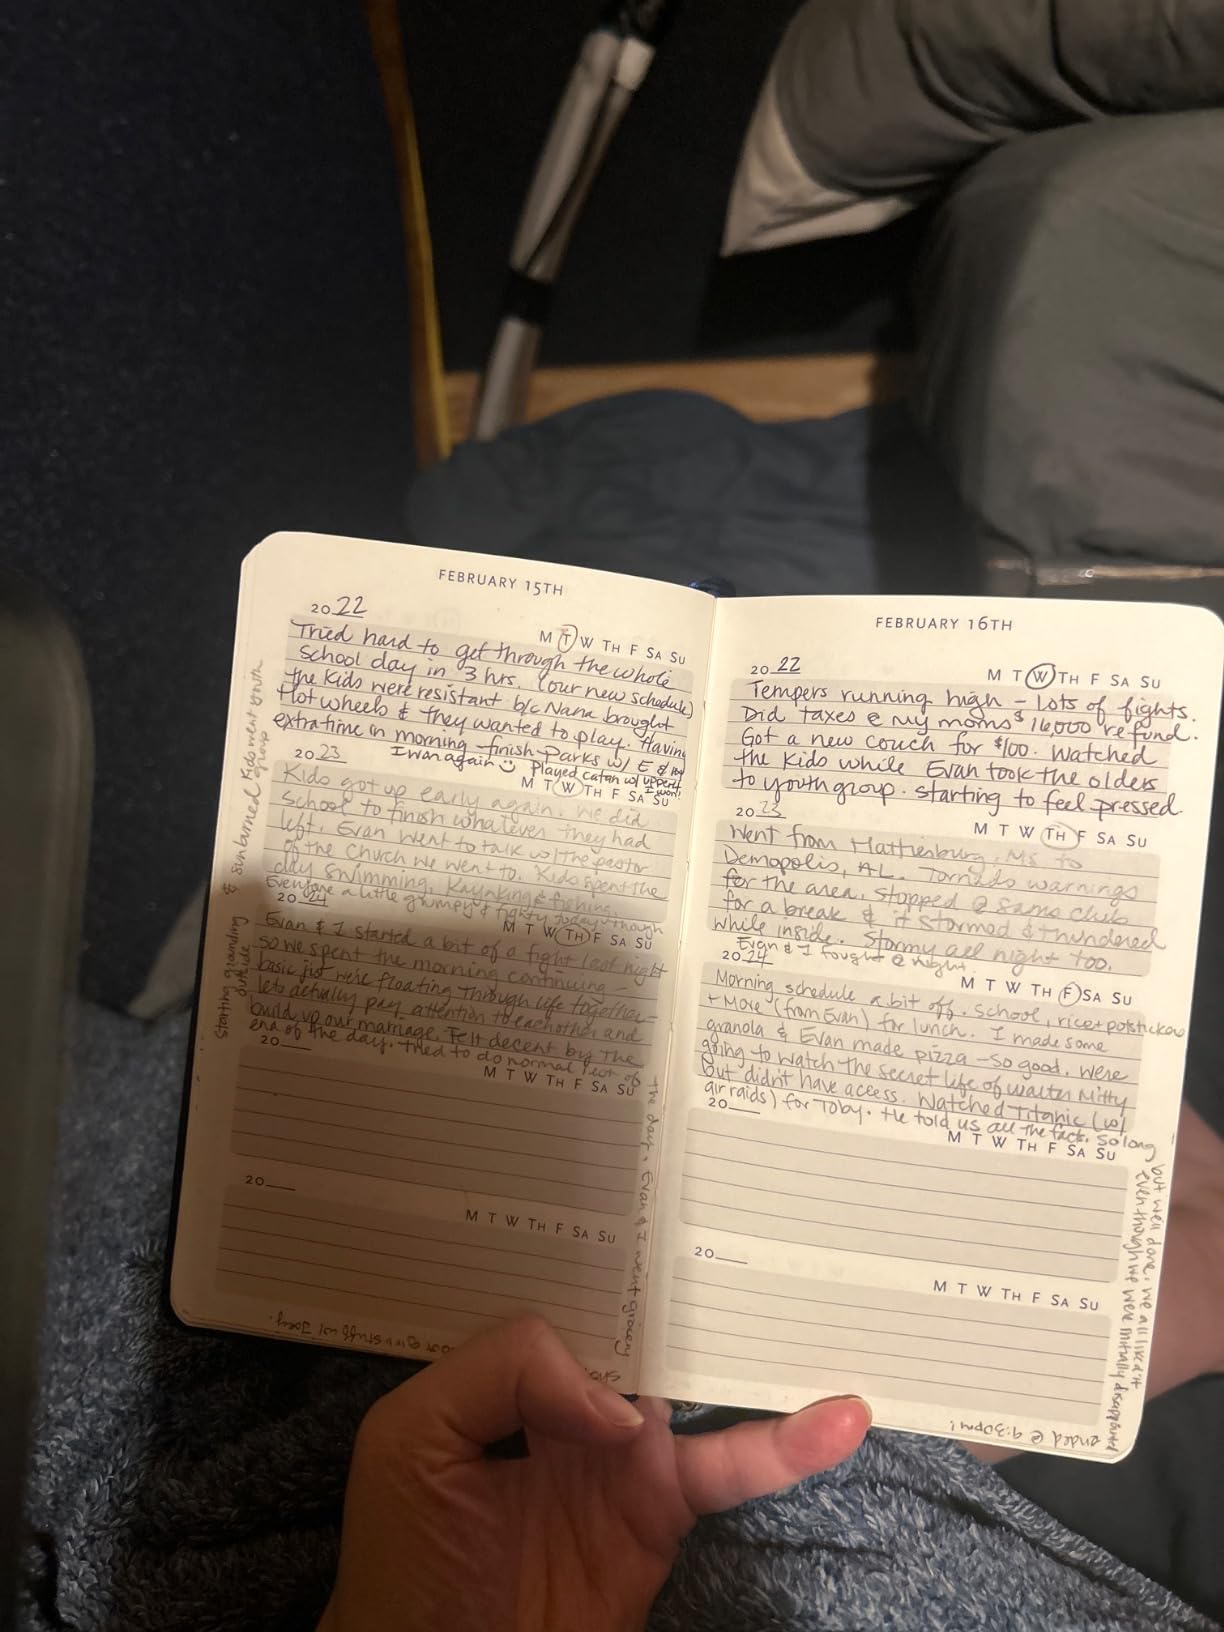 FEBRUARY 15TH
20 22
M T W TH F SA SU
Tried hard to get through the whole
school day in 3 hrs. (our new schedule)
the kids were resistant b/c Nana brought
Hot wheels & they wanted to play. Having
extra time in morning finish Parks w/ E &
I won again Played catan w/
I won!
20 23
M T W TH F SA SU
Kids got up early again. We did
school to finish whatever they had
left. Evan went to talk w/ the pastor
of the church we went to. Kids spent the
day swimming, Kayaking & fishing.
Everyone a little grumpy & fighty today though
& sunburned Kids went youth
group
20 24
M T W TH F SA SU
Evan & I started a bit of a fight last night
so we spent the morning continuing -
basic just we're floating through life together -
lets actually pay attention to eachother and
build up our marriage. Felt decent by the
end of the day. Tried to do normal rest of
the day. Evan & I went grocery
w/ Joey.
Starting
outside
20
M T W TH F SA SU
20
M T W TH F SA SU
FEBRUARY 16TH
20 22
M T W TH F SA SU
Tempers running high - lots of fights.
Did taxes @ my moms $16,000 refund.
Got a new couch for $100. Watched
the kids while Evan took the olders
to youth group. starting to feel pressed.
20 23
M T W TH F SA SU
Went from Hattiesburg, MS to
Demopolis, AL. Tornado warnings
for the area. Stopped @ Sams club
for a break & it stormed & thundered
while inside. Stormy all night too.
Evan & I fought @ night.
20 24
M T W TH F SA SU
Morning schedule a bit off. School, rice + potstickers
+ More (from Evan) for lunch. I made some
granola & Evan made pizza - so good. Were
going to watch the secret life of walter Mitty
but didn't have access. Watched Titanic (w/
air raids) for Toby. He told us all the facts. So long
but well done. We all liked it
even though we were initially disappointed
ended @ 9:30pm!
20
M T W TH F SA SU
20
M T W TH F SA SU